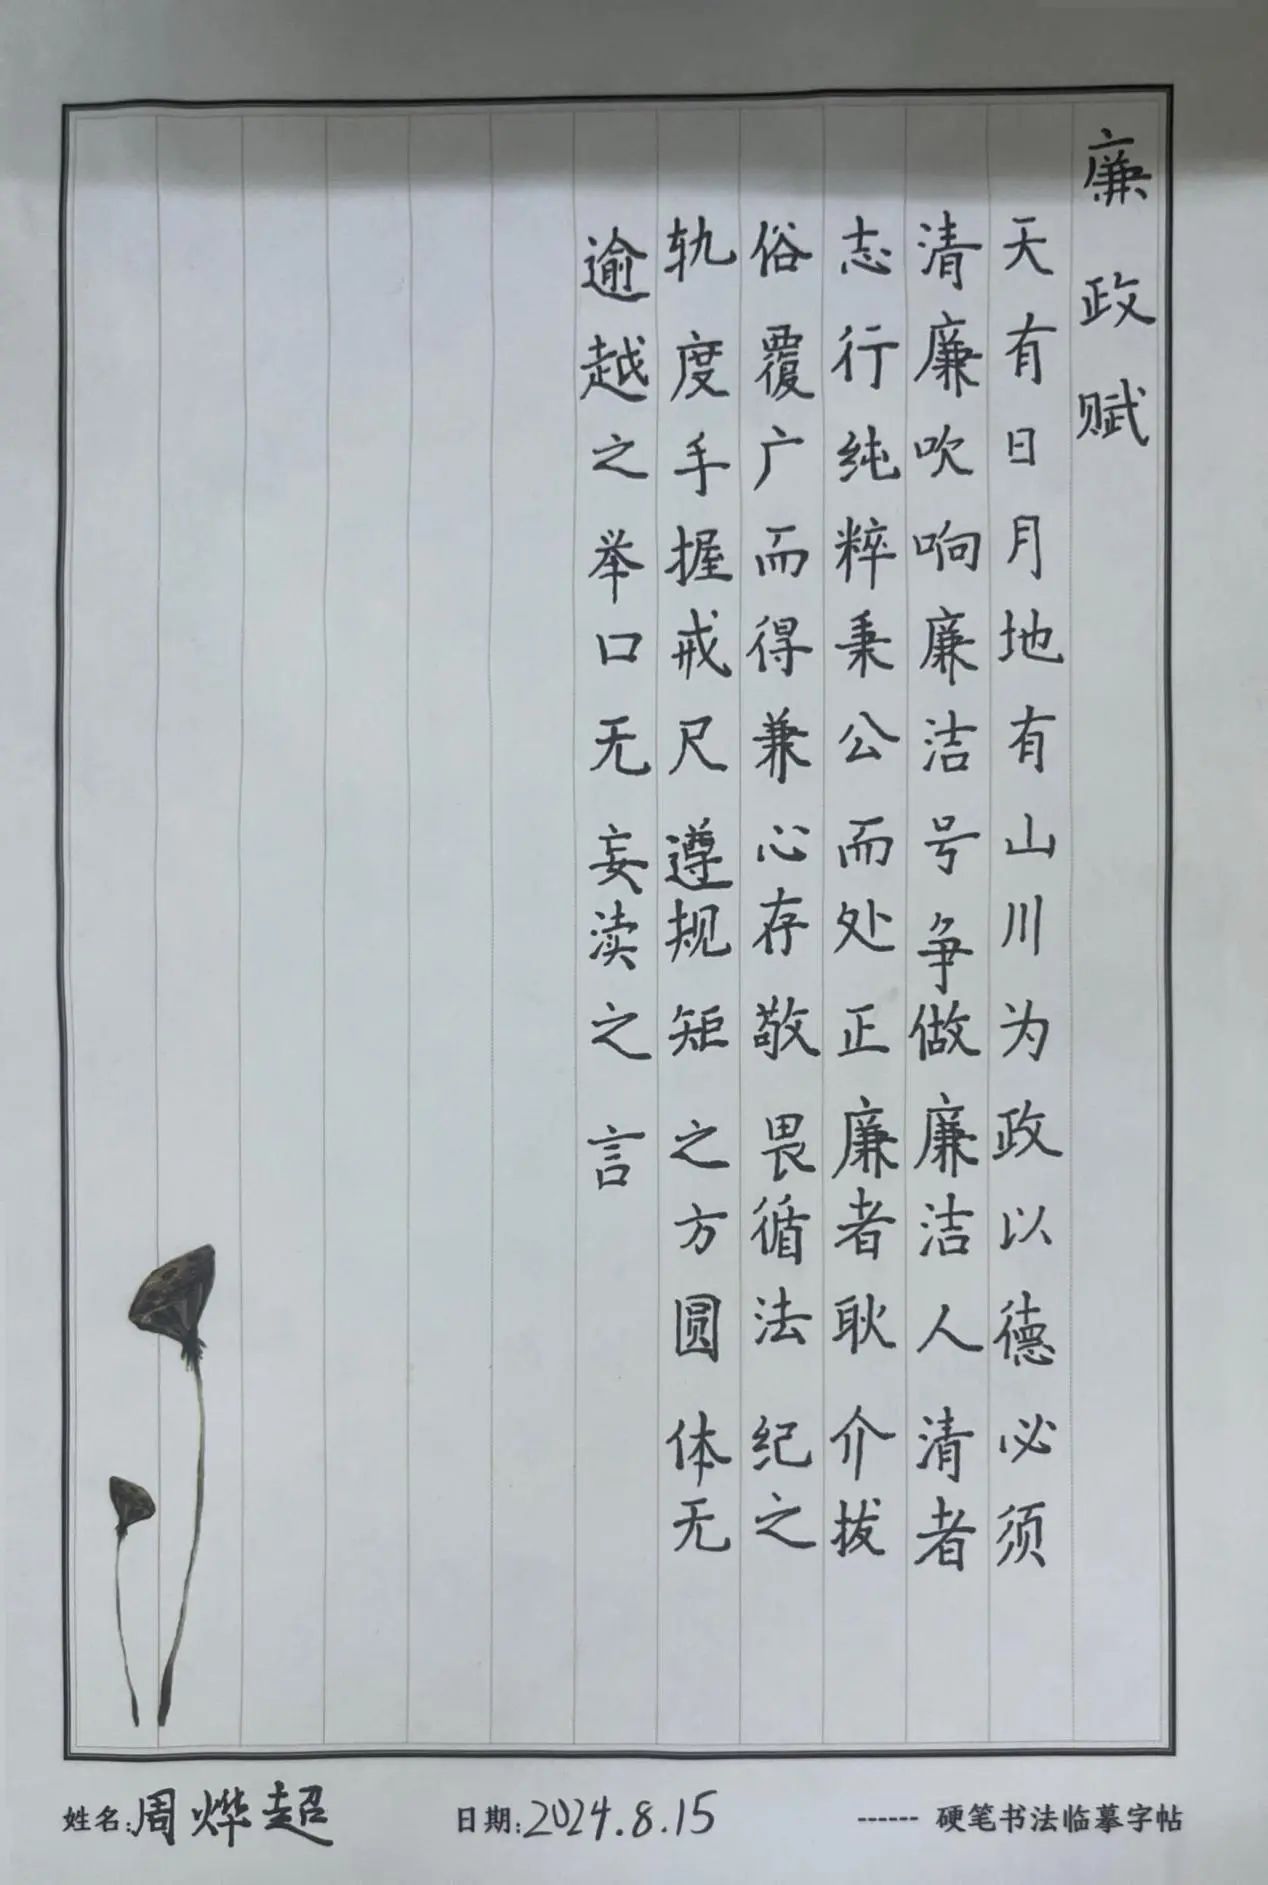 廉政赋
天有日月地有山川为政以德必须
清廉吹响廉洁号争做廉洁人清者
志行纯粹秉公而处正廉者耿介拔
俗覆广而得兼心存敬畏循法纪之
轨度手握戒尺遵规矩之方圆体无
逾越之举口无妄渎之言
姓名:周烨超 日期:2024.8.15 ------ 硬笔书法临摹字帖